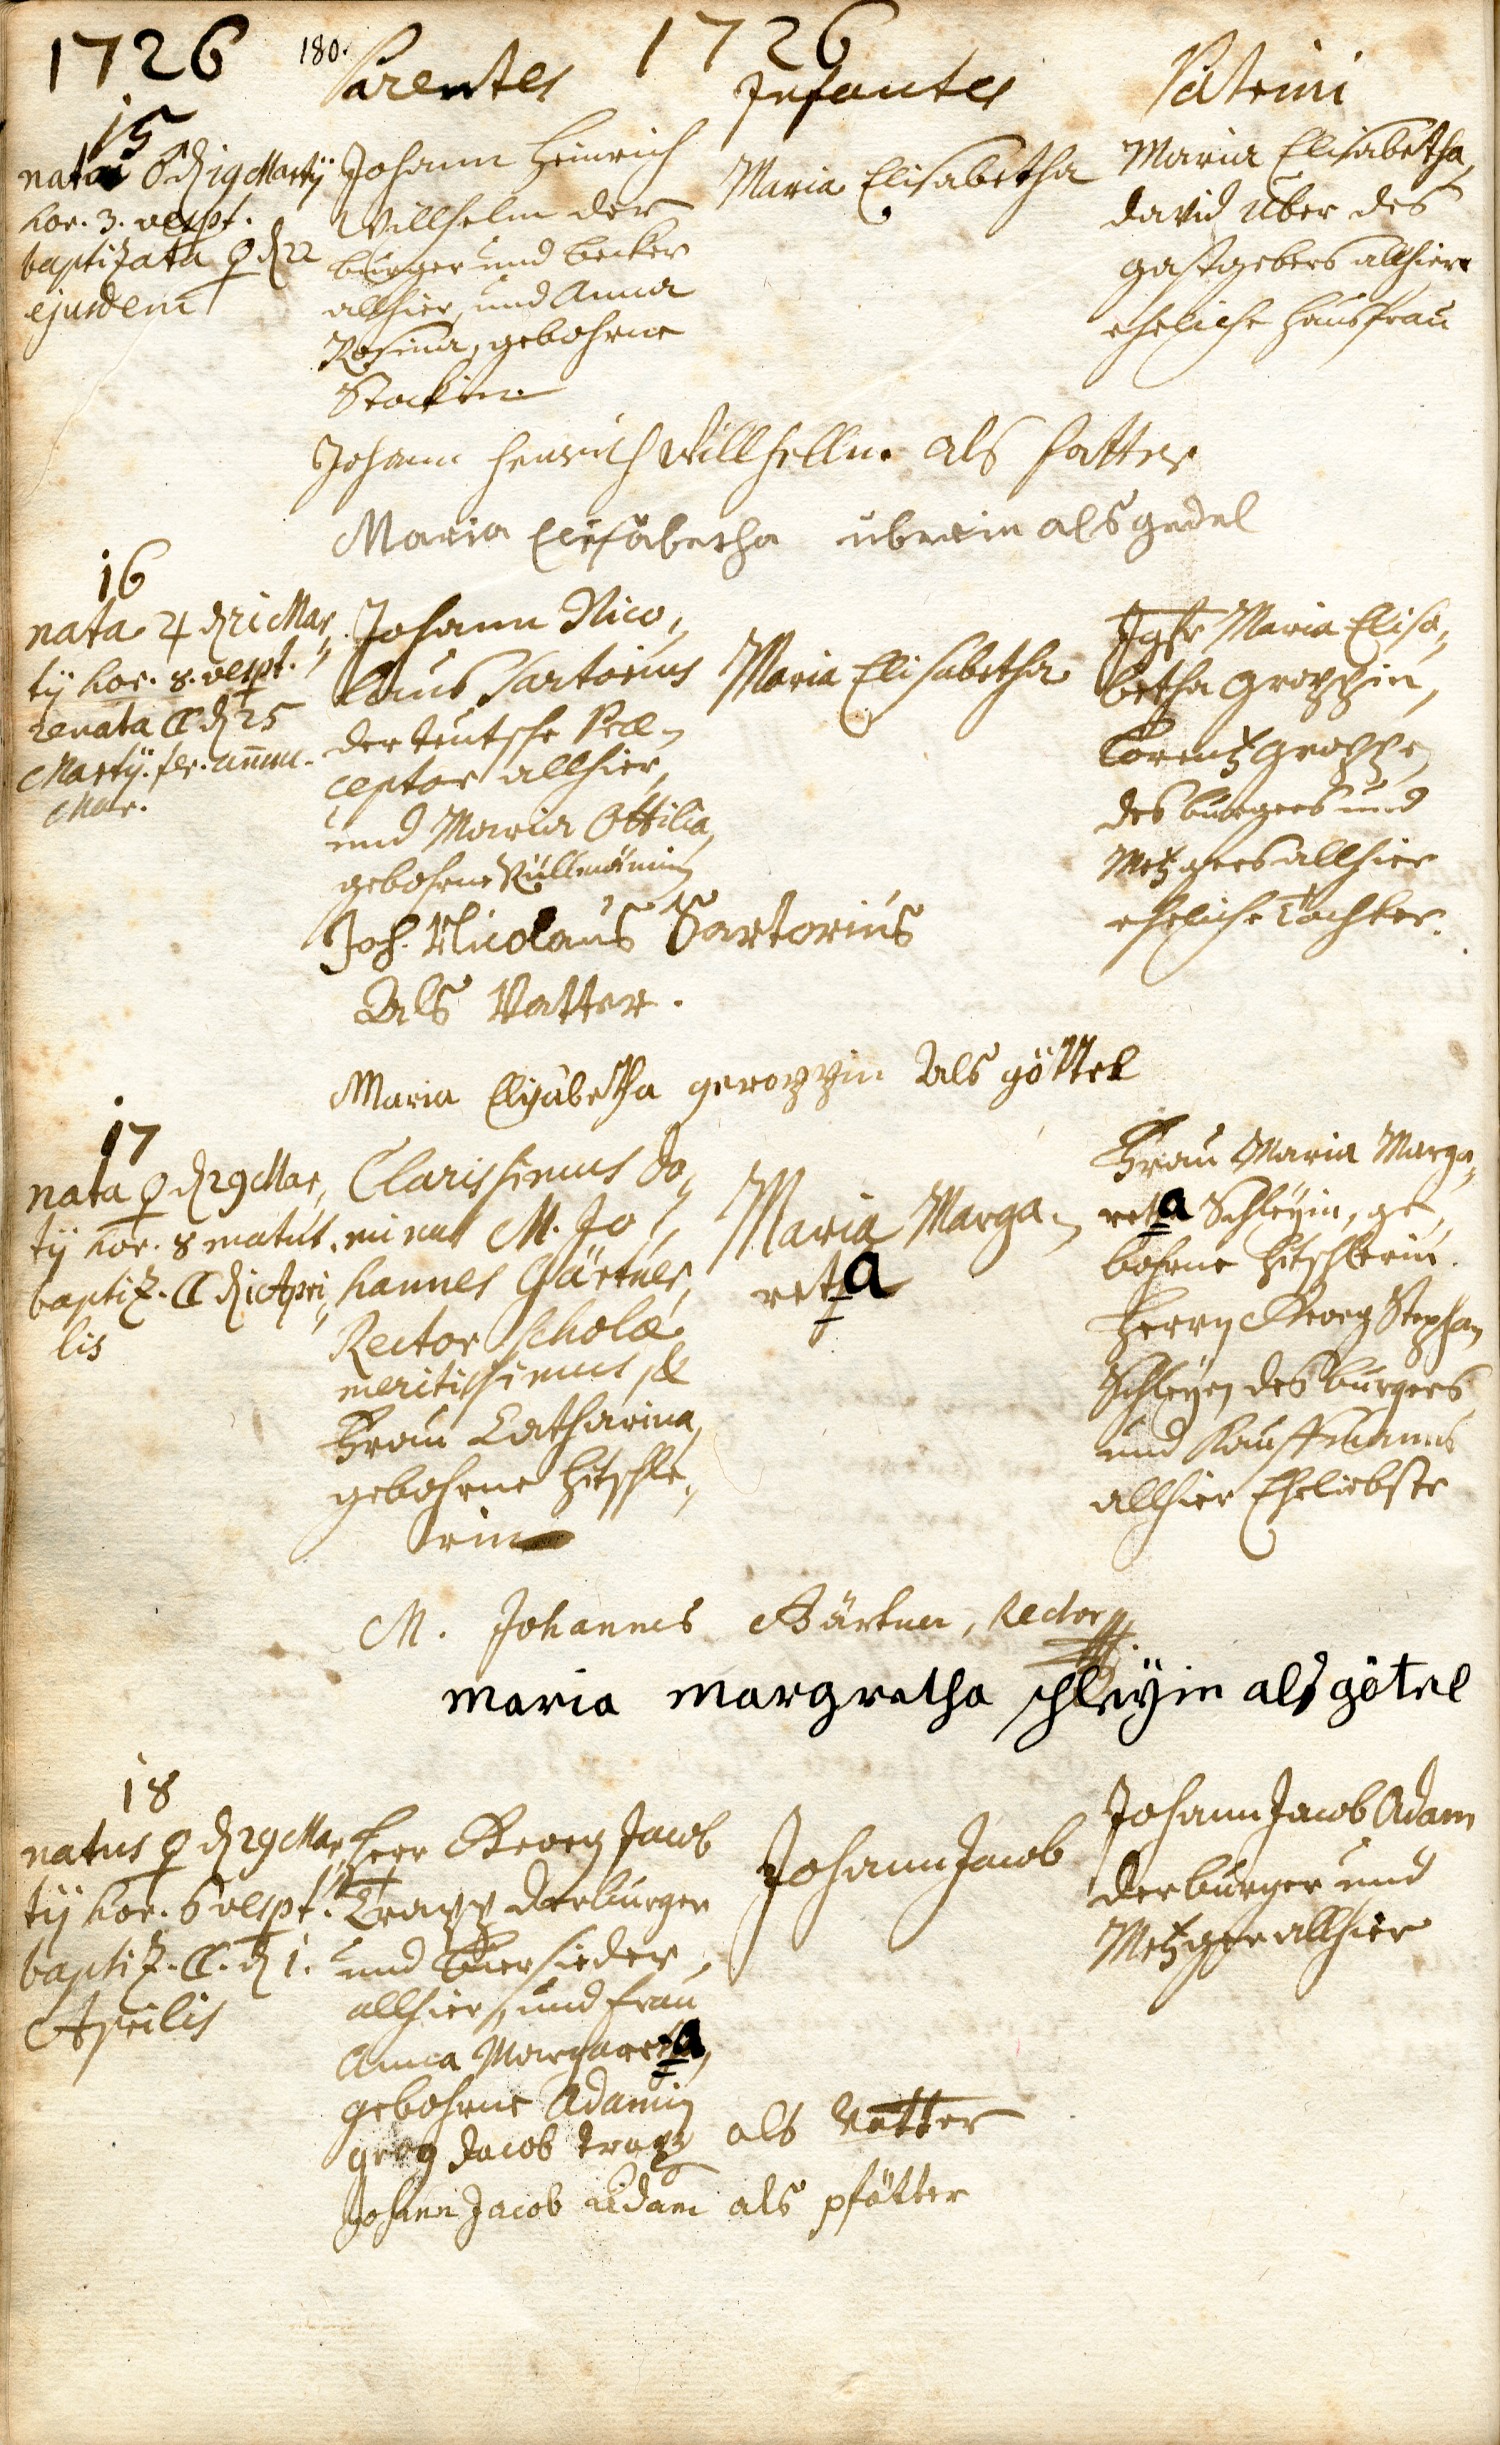 1726 180. 1726
Parentes Infantes Patrini
15
nata ♂ d 19 Martÿ
hor. 3. vespt.
baptizata ♀ d 22
ejusdem
Johann Heinrich
Willhelm der
burger und becker
allhier, und Anna
Rosina, gebohrne
Maria Elisabetha
Maria Elisabetha,
david Uber des
gastgebers allhier
eheliche Hausfrau
Johann Henrich Willhellm als Vatter
Maria Elisabetha uberin als gedel
16
nata ♃ d 21 Mar„
tÿ hor. 8. vespt.
renata ☾ d 25
Martÿ. fer. annun.
Mar.
Johann Nico„
laus Sartorius
der teutsche Præ„
ceptor allhier,
und Maria Ottilia,
gebohrne
Maria Elisabetha
Jgfr Maria Elisa„
betha Groppin,
Lorentz Groppe,
des burgers und
Metzgers allhier
eheliche Tochter.
Joh. Nicolaus Sartorius
Als Vatter.
Maria Elisabetha geroppin Als göttel
17
nata ♀ d 29 Mar„
tÿ hor. 8 matut.
baptiz. ☾ d 1 Apri„
lis
Clarissimus Do„
minus M. Jo„
hannes Gärtner,
Rector scholæ
meritissimus, &
Frau Catharina,
gebohrne Hitschle„
rin
Maria Marga„
reta
Frau Maria Marga„
reta Schleÿin, ge„
bohrne Hitschlerin.
Herrn Georg Stephan
Schleÿen des burgers
und Kauffmanns
allhier Eheliebste
M. Johannes Gärtner, Rector
maria margretha schleÿin als götel
18
natus ♀ d 29 Mar„
tÿ hor. 6 vespt.
baptiz. ☾. d 1.
Aprilis
Herr Georg Jacob
Trapp der burger
und Biersieder
allhier, und Frau
Anna Margareta,
gebohrne Adamin
Johann Jacob
Johann Jacob Adam
der burger und
Metzger allhier
georg Jacob trapp als Vatter
Johann Jacob Adam als pfötter